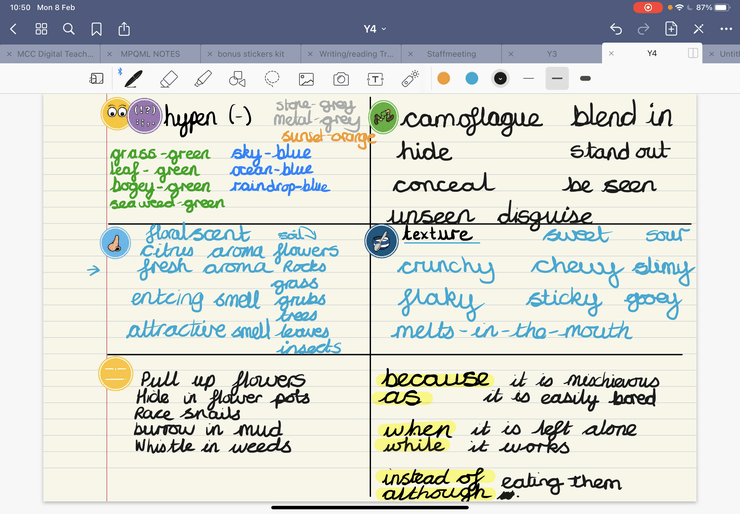 10:50 Mon 8 Feb
87%
Y4
MCC Digital Teach...
MPQML NOTES
bonus stickers kit
Writing/reading Tr...
Staffmeeting
Y3
Y4
Untit
(!?)
hypen (-)
stone-grey
metal-grey
sunset-orange
grass-green
leaf-green
bogey-green
seaweed-green
sky-blue
ocean-blue
raindrop-blue
camoflague blend in
hide stand out
conceal be seen
unseen disguise
floral scent soil
citrus aroma flowers
fresh aroma Rocks
grass
enticing smell grubs
trees
attractive smell leaves
insects
texture sweet sour
crunchy chewy slimy
flaky sticky gooey
melts-in-the-mouth
Pull up flowers
Hide in flower pots
Race snails
burrow in mud
Whistle in weeds
because it is mischievous
as it is easily bored
when it is left alone
while it works
instead of eating them
although